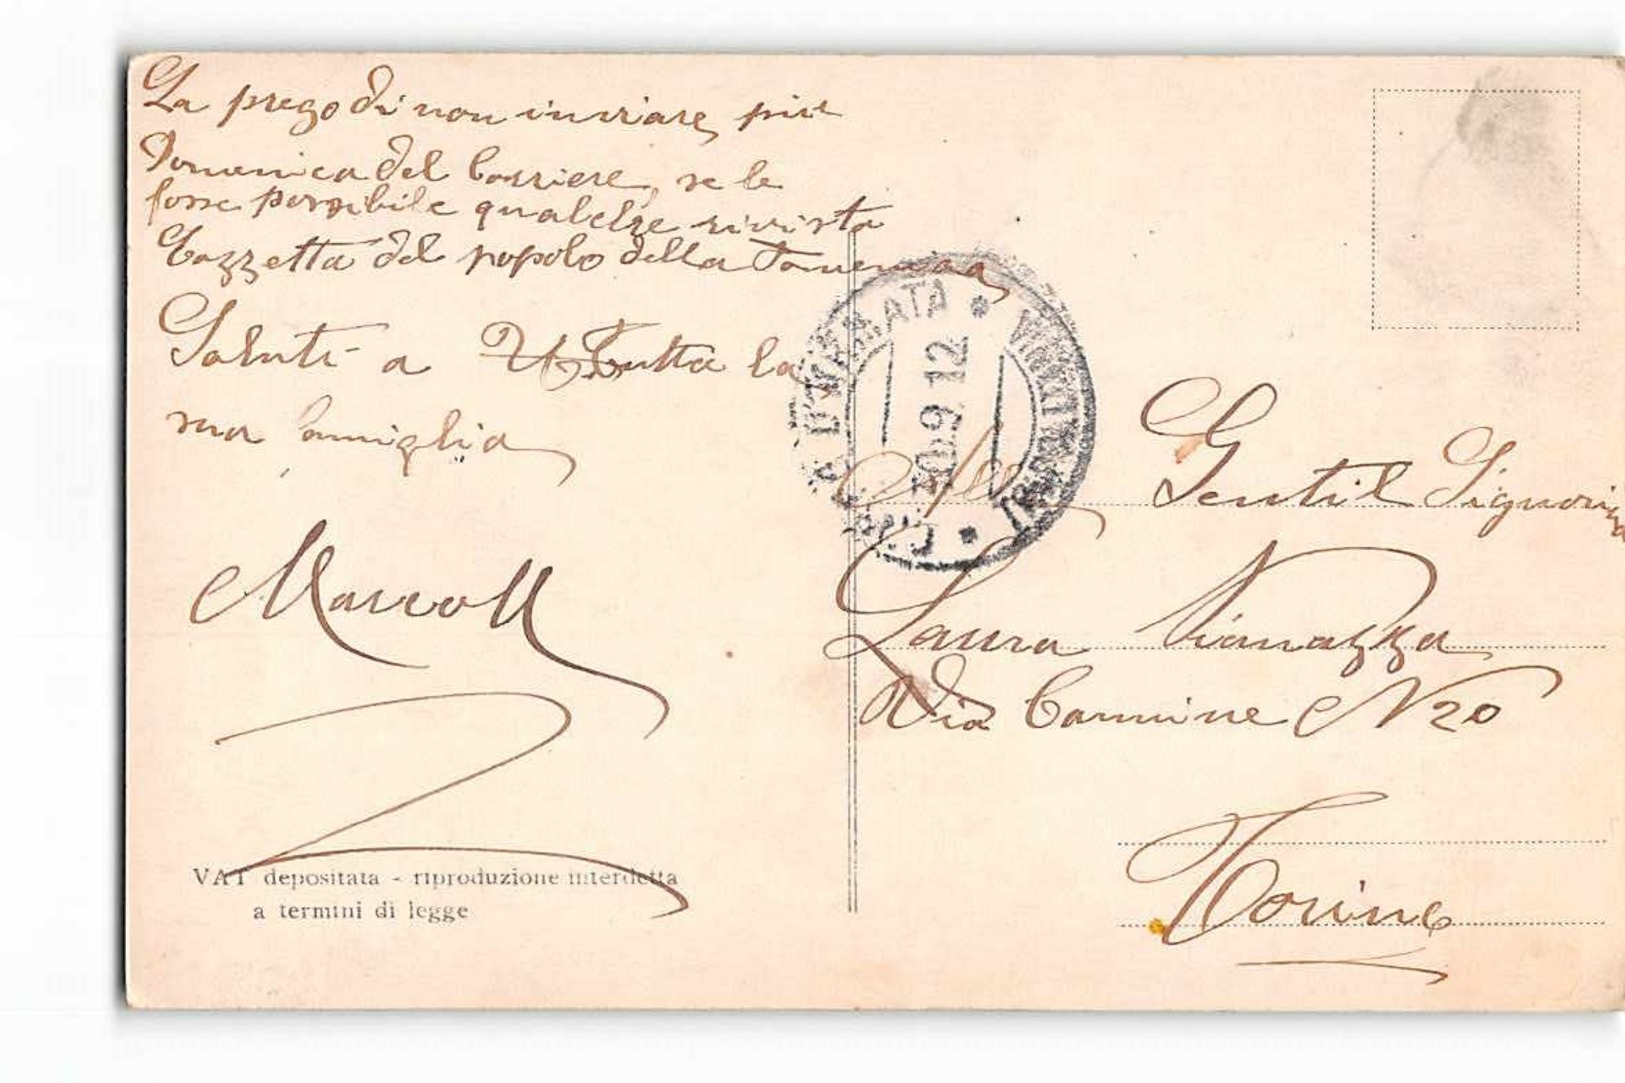 La prego di non inviare più
Domenica del Corriere, se le
fosse possibile qualche rivista
Gazzetta del popolo della Domenica
Saluti a tutta la
sua famiglia
Alla Gentil Signorina
Laura Vianazza
Via Carmine N 20
Torino
VAT depositata - riproduzione interdetta
a termini di legge
D'ARMATA
9 12